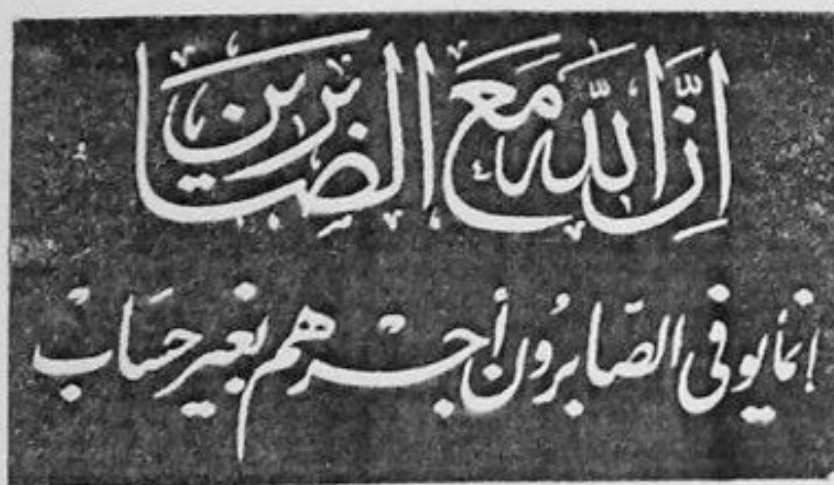 إنّ الله مع الصّابرين
إنما يوفى الصّابرُون أجرهم بغير حسَابْ